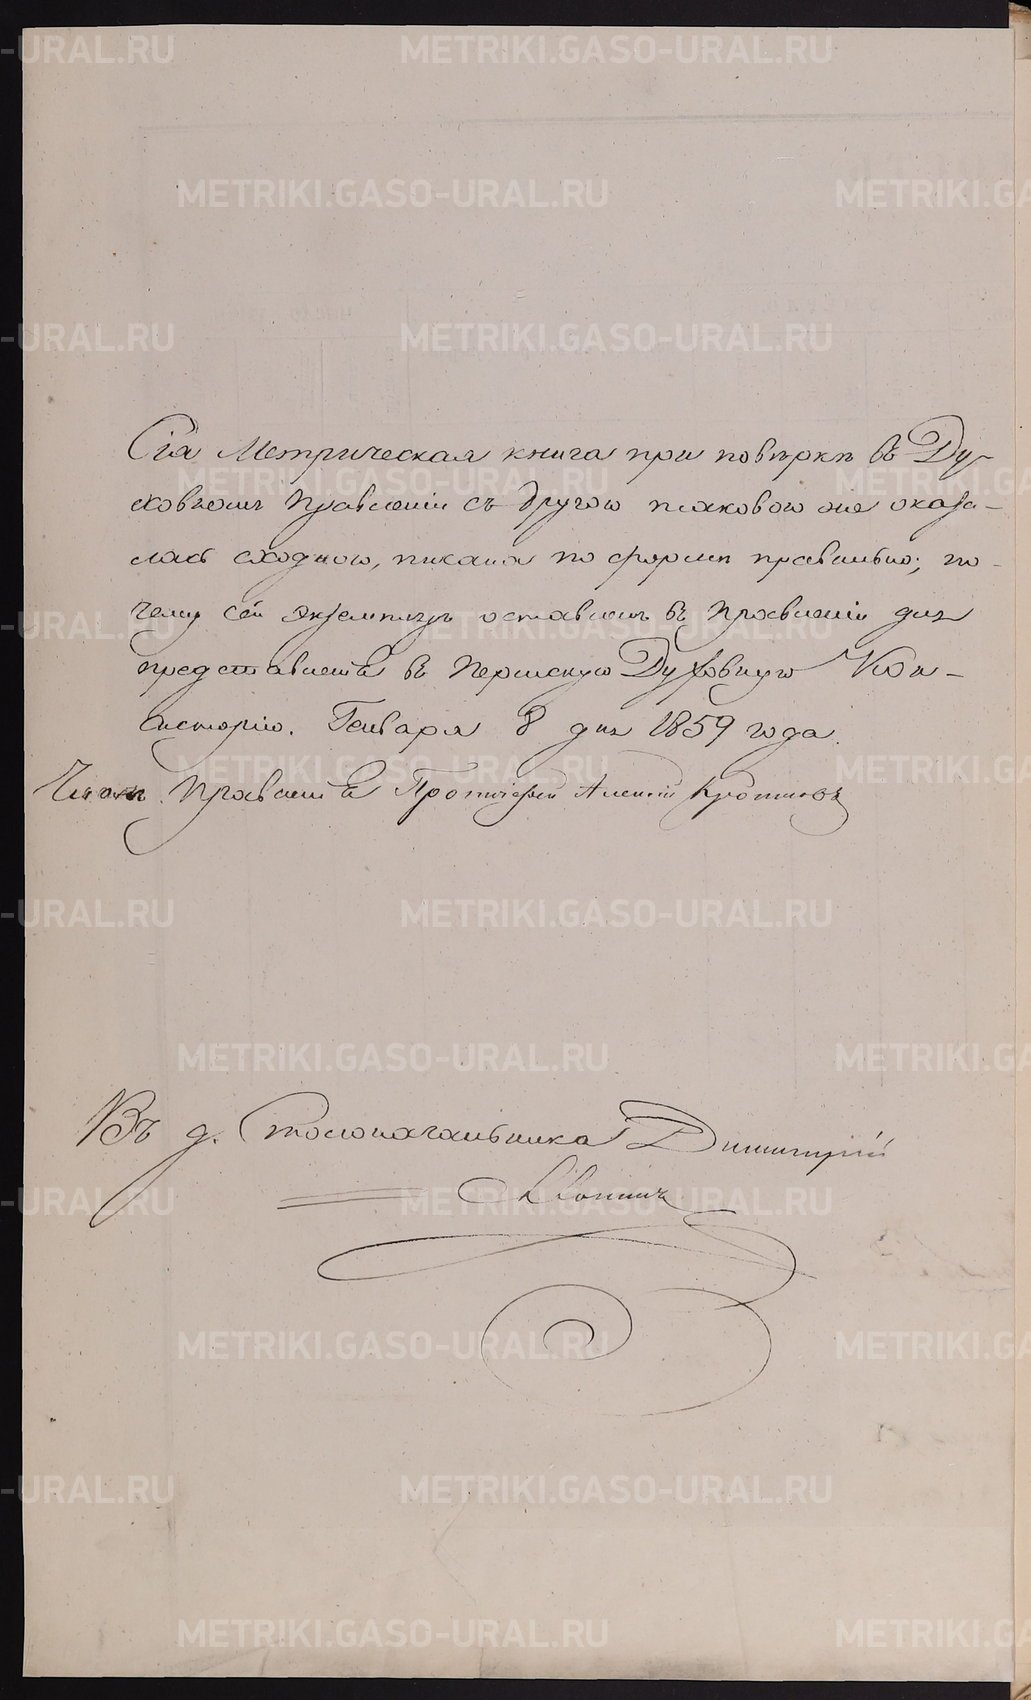 Сiя Метрическая книга при повѣркѣ въ Ду-
ховномъ Правленiи съ другою таковою же оказа-
лась сходною, писана по формѣ правильно; по-
чему сей экземпляръ оставленъ въ Правленiи для
представленiя въ Пермскую Духовную Кон-
систорiю. Генваря 8 дня 1859 года.
Членъ Правленiя Протоiерей Алексiй Кротковъ
Въ д. Столоначальника Димитрiй